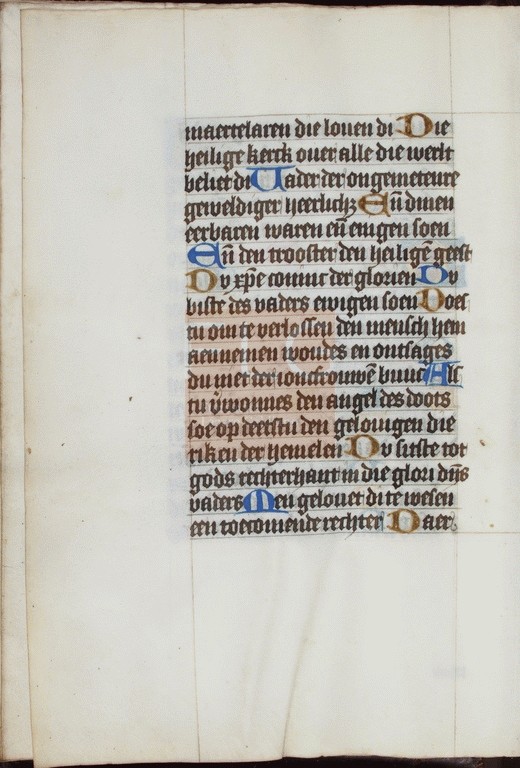 maertelaren die louen di Die
heilige kerck ouer alle die werlt
beliet di Uader der ongemeteure
geweldiger heerlichz Eñ dinen
eerbaren waren eñ enigen soen
Eñ den trooster den heiligē geest
Dv xp̄e coninc der glorien Dv
biste des vaders ewigen soen Doe
tu om te verlossen den mensch hem
aennemen woudes en ontsages
du niet der ioncfrouwē buuc Als
tu v̄wonnes den angel des doots
soe op deetstu den gelouigen die
riken der hemelen Dv sitste tot
gods rechterhant in die glori dijns
vaders Men gelouet di te wesen
een toecomende rechter Daer